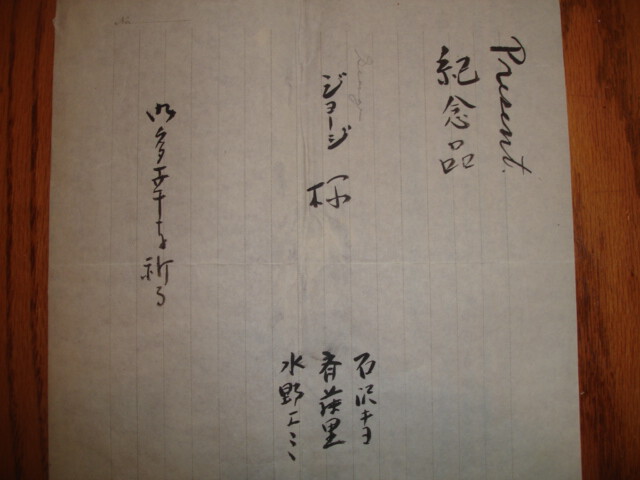 Present.
紀念品
George
ジョージ 様
石沢キヨ
水野エミ
御多幸を祈る
No.